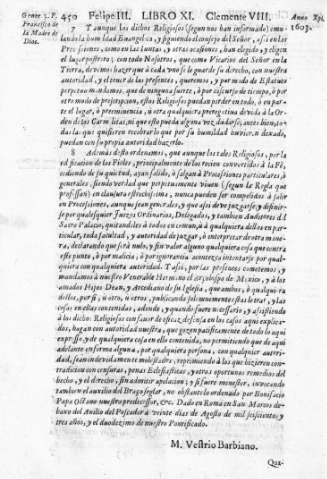 Gener. 5. F.
Francisco de
la Madre de
Dios.
450 Felipe III. LIBRO XI. Clemente VIII.
Anno Xpi.
1603.
7 Y aunque los dichos Religiosos (segun nos han informado)
lando la humildad Evangelica, y siguiendo el consejo del Señor, assi en las
Processiones, como en las Iuntas, y otras ocasiones, han elegido, y eligen
el lugar postrero; con todo Nosotros, que como Vicarios del Señor en la
Tierra, devemos hazer que à cada uno se le guarde su derecho, con nuestra
autoridad, y el tenor de las presentes, queremos, y por modo de Estatuto
perpetuo mandamos, que de ninguna suerte, ò por discurso de tiempo, ò por
otro modo de prejuzgacion, estos Religiosos puedan perder en todo, ò en parte
el lugar, ò preeminencia, ù otra qualquiera prerogativa devida à la Orden
de los Carmelitas, ni que esto pueda alguna vez dañarles, antes bien todas
las que quisieren recobrar las que por su humildad huvieren dexado,
puedan con su propia autoridad hazerlo.
8 Ademàs desto ordenamos, que aunque los tales Religiosos, por la
edificacion de los Fieles, principalmente los recien convertidos à la Fè,
cediendo de su quietud, ayan salido, ò salgan à Processiones particulares, ò
generales, siendo verdad que perpetuamente viven (segun la Regla que
professan) en clausura estrechissima, nunca pueden ser compelidos à salir
en Processiones, aunque sean generales, y que assi deve juzgarse, y difinirse
por qualesquier Juezes Ordinarios, Delegados, y tambien Auditores del
Sacro Palacio, quitandoles à todos en comun, à qualquiera dellos en particular,
toda facultad, y autoridad de juzgar, ò interpretar de otra manera,
declarando que serà nulo, y sin valor alguno qualquiera cosa que contra
este punto, ò por malicia, ò por ignorancia aconteciere intentarse por qualquiera
con qualquiera autoridad. Y assi, por las presentes cometemos, y
mandamos à nuestro Venerable Hermano el Arçobispo de Mexico, y à los
amados Hijos Dean, y Arcediano de su Iglesia, que ambos, ò qualquiera
dellos, por sì, ù otro, ù otros, publicando solemnemente estas letras, y las
cosas en ellas contenidas, adonde, y quando fuere necessario, y assistiendo
à los dichos Religiosos con favor de eficaz defensa en las cosas aqui explicadas,
hagan con autoridad nuestra, que gozen pacificamente de todo lo aqui
expresso, y de qualquiera cosa en ello contenida, no permitiendo que de aqui
adelante en forma alguna, por qualquiera persona, con qualquier autoridad,
sean indevidamente molestados; reprimiendo à los que hizieren contradicion
con censuras, penas Eclesiasticas, y otros oportunos remedios del
hecho, y el derecho, sin admitir apelacion; y si fuere menester, invocando
tambien el auxilio del Braço seglar, no obstante lo ordenado por Bonifacio
Papa Octavo nuestro predecessor, &c. Dado en Roma en San Marcos debaxo
del Anillo del Pescador à veinte dias de Agosto de mil seiscientos y
tres años, y el duodezimo de nuestro Pontificado.
M. Vestrio Barbiano.
Qua-